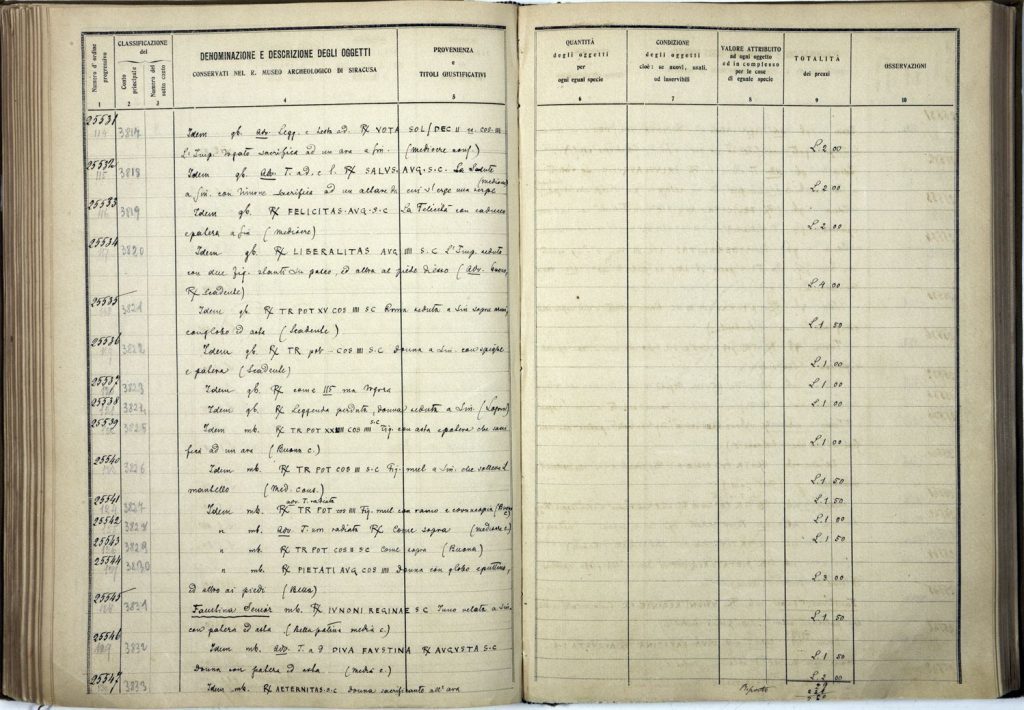 Numero d'ordine progressivo
CLASSIFICAZIONE del
Conto principale
Numero del sotto conto
DENOMINAZIONE E DESCRIZIONE DEGLI OGGETTI
CONSERVATI NEL R. MUSEO ARCHEOLOGICO DI SIRACUSA
PROVENIENZA
e
TITOLI GIUSTIFICATIVI
QUANTITÀ
degli oggetti
per
ogni eguai specie
CONDIZIONE
degli oggetti
cioè: se nuovi, usati,
od inservibili
VALORE ATTRIBUITO
ad ogni oggetto
od in complesso
per le cose
di eguale specie
TOTALITÀ
dei prezzi
OSSERVAZIONI
1 2 3 4 5 6 7 8 9 10
25531
114 3817 Idem gb. adv. Legg. e testa ad. R/ VOTA SOL/DEC II COS IIII
L'Imp. togato sacrifica ad un ara a sin. (mediocre conf.) L. 2 00
25532
115 3818 Idem gb. adv. T. ad. e l. R/ SALUS. AUG. S. C. La Salute (mediocre)
a sin. con timone sacrifica ad un altare da cui s'erge una serpe L. 2 00
25533
116 3819 Idem gb. R/ FELICITAS. AVG. S. C La Felicità con caduceo
e patera a sin (mediocre) L. 2 00
25534
3820 Idem gb. R/ LIBERALITAS AVG IIII S. C L'Imp. seduto
con due fig. stanti su palco, ed altra al piede di esso (adv. buono,
R/ scadente) L. 4 00
25535
3821 Idem gb. R/ TR POT XV COS IIII S C Roma seduta a sin sopra armi,
con globo ed asta (Scadente) L. 1 50
25536
3822 Idem gb. R/ TR. pot - COS IIII S. C donna a sin. con spighe
e patera (Scadente) L. 1 00
25537
3823 Idem gb. R/ come 115 ma togora L. 1 00
25538
3824 Idem gb. R/ Leggenda perduta, donna seduta a sin. (Logora) L. 1 00
25539
3825 Idem mb. R/ TR POT XXIIII COS IIII S.C fig. con asta e patera che sacri
fica ad un ara (Buona c.) L. 1 00
25540
3826 Idem mb. R/ TR POT COS III S. C Fig. mul a sin. che solleva il
mantello (Med. cons.) L. 1 50
25541
3827 Idem mb. adv. T. radiata R/ TR POT COS IIII Fig. mul con ramo e cornucopia (Buona c.) L. 1 50
25542
3828 " mb. adv. T. con radiata R/ Come sopra (mediocre c.) L. 1 00
25543
3829 " mb. R/ TR POT COS II S C Come sopra (Buona) L. 1 50
25544
3830 " mb. R/ PIETATI AVG COS IIII donna con globo e puttino,
ed altro ai piedi (Bella) L. 3 00
25545
3831 Faustina Senior mb. R/ IVNONI REGINAE S C Juno velata a sin.
con patera ed asta (Bella patina media c.) L. 1 50
25546
129 3832 Idem mb. adv. T. a d DIVA FAUSTINA R/ AVGVSTA S. C
donna con patera ed asta (media c.) L. 1 50
25547
3833 Idem mb. R/ AETERNITAS. S. C donna sacrificante all'ara L. 2 00
Riporto